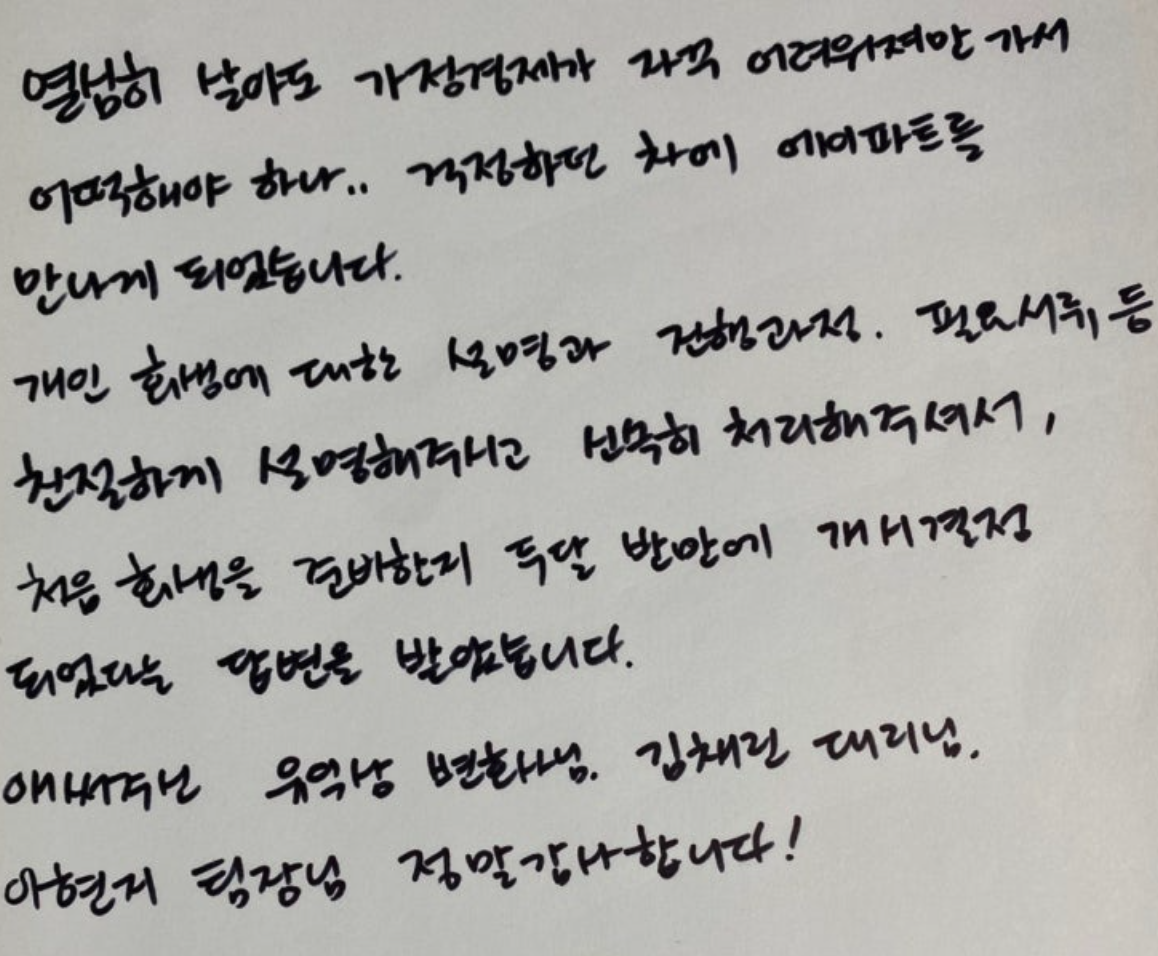 열심히 살아도 가정경제가 자꾸 어려워져만 가서
어떡해야 하나.. 걱정하던 차에 에이파트를
만나게 되었습니다.
개인 회생에 대한 설명과 진행과정. 필요서류, 등
친절하게 설명해주시고 신속히 처리해주셔서,
처음 회생을 준비한지 두달 반만에 개시결정
되었다는 답변을 받았습니다.
애써주신 유익상 변호사님. 김채린 대리님.
이현지 팀장님 정말감사합니다!